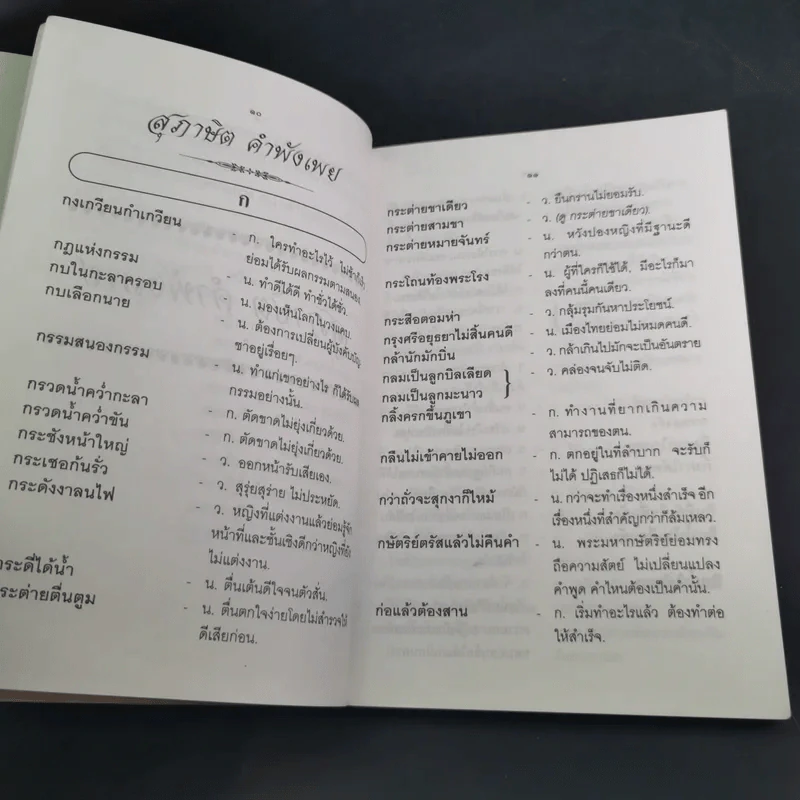 ๑๐
สุภาษิต คำพังเพย
ก
กงเกวียนกำเกวียน - ก. ใครทำอะไรไว้ ไม่ช้าก็เร็ว
ย่อมได้รับผลกรรมตามสนอง
กฎแห่งกรรม - น. ทำดีได้ดี ทำชั่วได้ชั่ว.
กบในกะลาครอบ - น. มองเห็นโลกในวงแคบ.
กบเลือกนาย - น. ต้องการเปลี่ยนผู้บังคับบัญ
ชาอยู่เรื่อยๆ.
กรรมสนองกรรม - น. ทำแก่เขาอย่างไร ก็ได้รับผล
กรรมอย่างนั้น.
กรวดน้ำคว่ำกะลา - ก. ตัดขาดไม่ยุ่งเกี่ยวด้วย.
กรวดน้ำคว่ำขัน - ก. ตัดขาดไม่ยุ่งเกี่ยวด้วย.
กระชังหน้าใหญ่ - ว. ออกหน้ารับเสียเอง.
กระเชอก้นรั่ว - ว. สุรุ่ยสุร่าย ไม่ประหยัด.
กระดังงาลนไฟ - ว. หญิงที่แต่งงานแล้วย่อมรู้จัก
หน้าที่และชั้นเชิงดีกว่าหญิงที่ยัง
ไม่แต่งงาน.
กระดี่ได้น้ำ - น. ตื่นเต้นดีใจจนตัวสั่น.
กระต่ายตื่นตูม - น. ตื่นตกใจง่ายโดยไม่สำรวจให้
ดีเสียก่อน.
๑๑
กระต่ายขาเดียว - ว. ยืนกรานไม่ยอมรับ.
กระต่ายสามขา - ว. (ดู กระต่ายขาเดียว).
กระต่ายหมายจันทร์ - น. หวังปองหญิงที่มีฐานะดี
กว่าตน.
กระโถนท้องพระโรง - น. ผู้ที่ใครก็ใช้ได้, มีอะไรก็มา
ลงที่คนนี้คนเดียว.
กระสือตอมห่า - ว. กลุ้มรุมกันหาประโยชน์.
กรุงศรีอยุธยาไม่สิ้นคนดี - น. เมืองไทยย่อมไม่หมดคนดี.
กล้านักมักบิ่น - ว. กล้าเกินไปมักจะเป็นอันตราย
กลมเป็นลูกบิลเลียด - ว. คล่องจนจับไม่ติด.
กลมเป็นลูกมะนาว
กลิ้งครกขึ้นภูเขา - ก. ทำงานที่ยากเกินความ
สามารถของตน.
กลืนไม่เข้าคายไม่ออก - ก. ตกอยู่ในที่ลำบาก จะรับก็
ไม่ได้ ปฏิเสธก็ไม่ได้.
กว่าถั่วจะสุกงาก็ไหม้ - น. กว่าจะทำเรื่องหนึ่งสำเร็จ อีก
เรื่องหนึ่งที่สำคัญกว่าก็ล้มเหลว.
กษัตริย์ตรัสแล้วไม่คืนคำ - น. พระมหากษัตริย์ย่อมทรง
ถือความสัตย์ ไม่เปลี่ยนแปลง
คำพูด คำไหนต้องเป็นคำนั้น.
ก่อแล้วต้องสาน - ก. เริ่มทำอะไรแล้ว ต้องทำต่อ
ให้สำเร็จ.